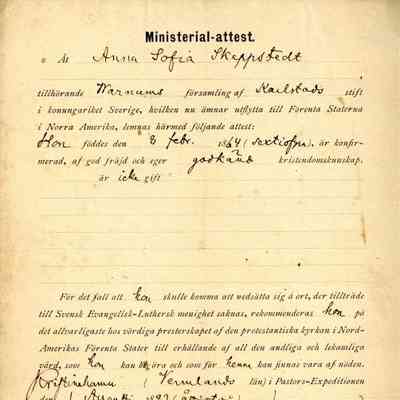 Ministerial-attest.
Åt Anna Sofia Skeppstedt
tillhörande Warnums församling af Karlstads stift
i konungariket Sverige, hvilken nu ämnar utflytta till Förenta Staterna
i Norra Amerika, lemnas härmed följande attest:
Hon föddes den 8 febr. 1864 (sextiofyra), är konfir-
merad, af god frejd och eger godkänd kristendomskunskap.
är icke gift
För det fall att hon skulle komma att nedsätta sig å ort, der tillträde
till Svensk Evangelisk-Luthersk menighet saknas, rekommenderas hon på
det allvarligaste hos vördiga presterskapet af den protestantiska kyrkan i Nord-
Amerikas Förenta Stater till erhållande af all den andliga och lekamliga
vård, som hon kan ära och som för henne kan finnas vara af nöden.
Kristinehamn ( Vermlands län) i Pastors-Expeditionen
den